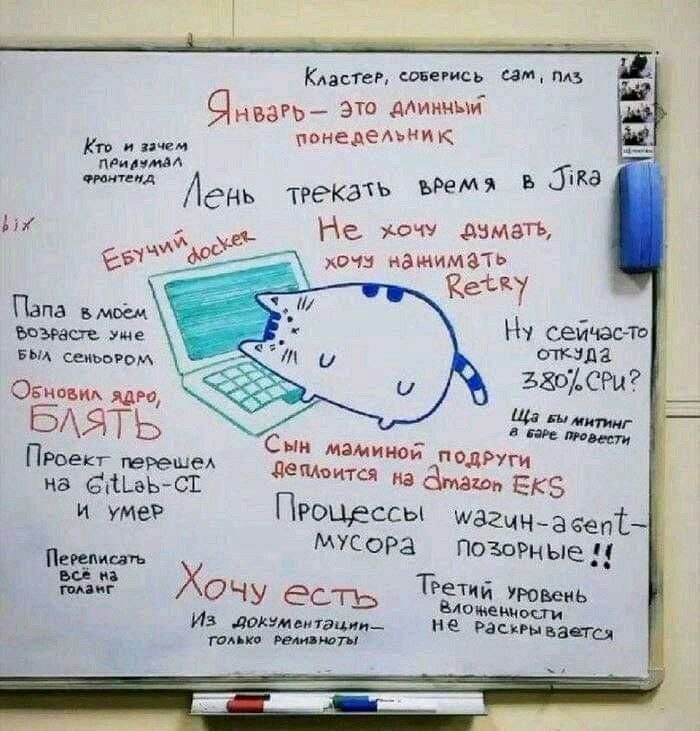 Кластер, соберись сам, плз
Январь – это длинный
понедельник
Кто и зачем
придумал
фронтенд
Лень трекать время в Jira
bix
Не хочу думать,
хочу нажимать
Retry
Ебучий docker
Папа в моём
возрасте уже
был сеньором
Ну сейчас-то
откуда
380% CPU?
Обновил ядро,
БЛЯТЬ
Ща бы митинг
в баре провести
Сын маминой подруги
деплоится на Amazon EKS
Проект перешел
на GitLab-CI
и умер
Процессы wazuн-agent-
мусора позорные!!
Переписать
всё на
голанг
Хочу есть
Третий уровень
вложенности
не раскрывается
Из документации–
только релизноты